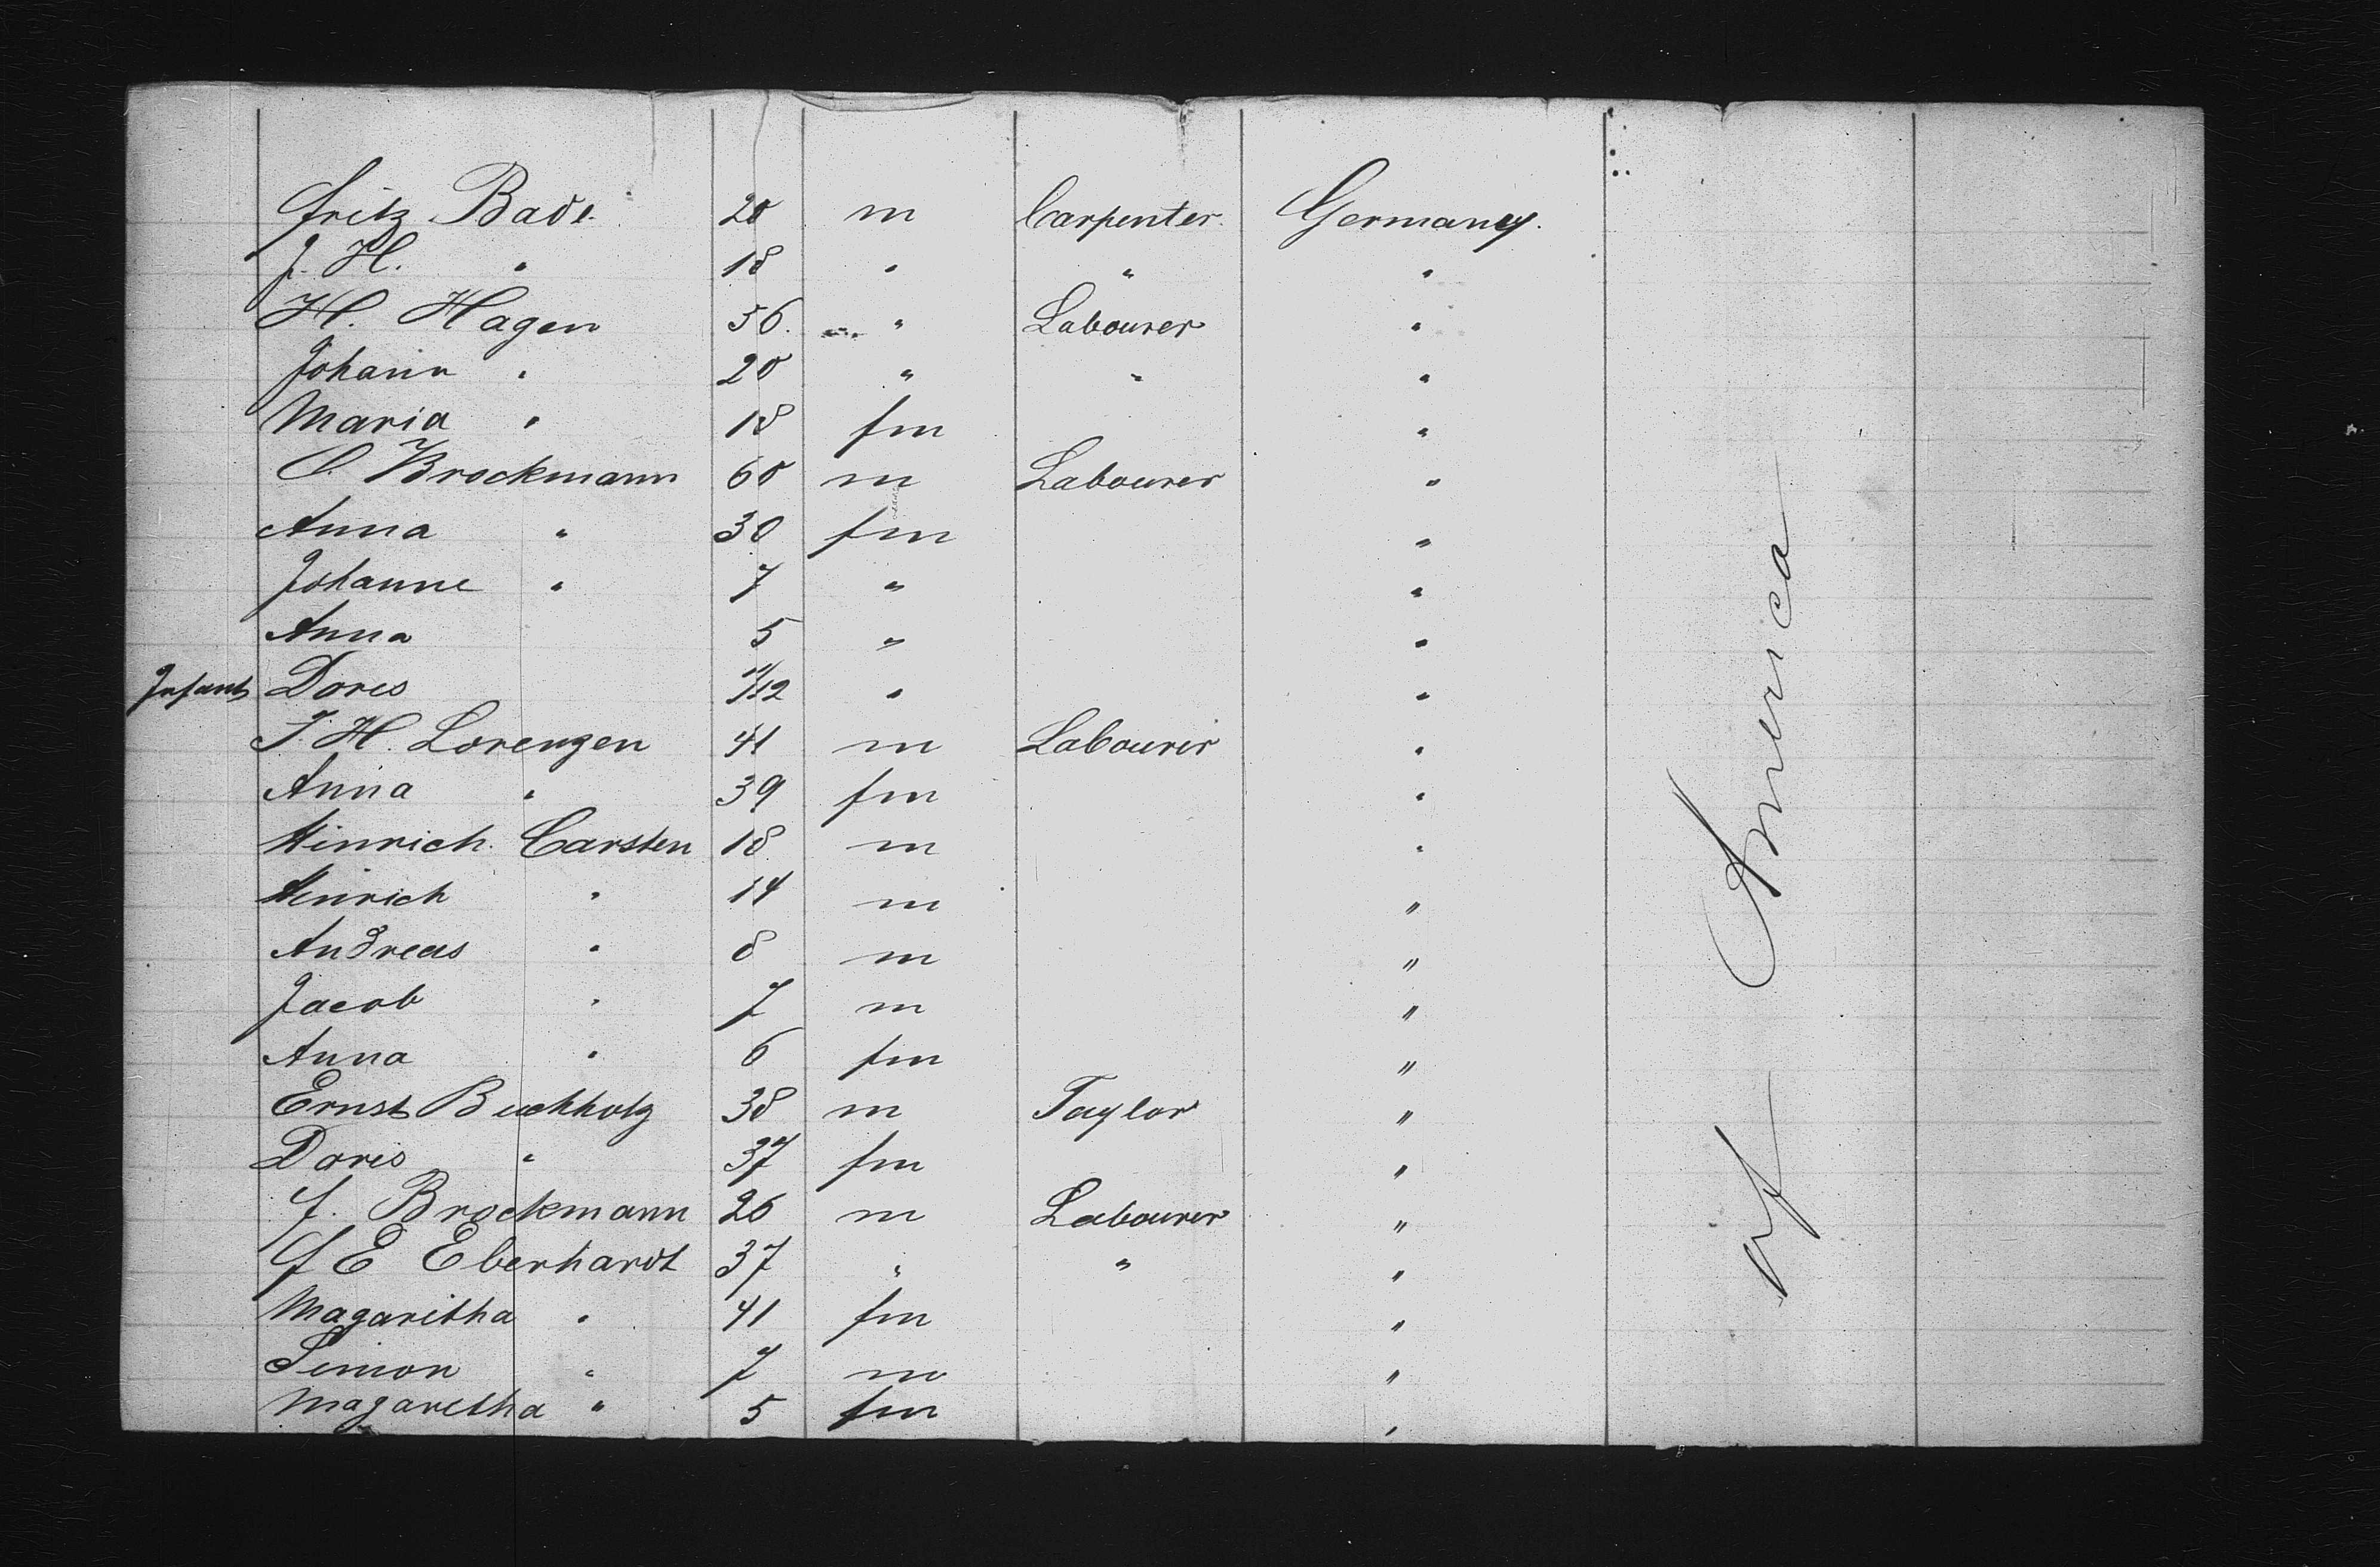 Fritz Bade. 20 m Carpenter. Germany.
J. H. " 18 " " "
H. Hagen 56. " Labourer "
Johann " 20 " " "
Maria " 18 fm "
C. Brockmann 60 m Labourer "
Anna " 30 fm "
Johanne " 7 " "
Anna 5 " "
Infant Doris 11/12 " "
J. H. Lorenzen 41 m Labourer "
Anna " 39 fm "
Hinrich Carsten 18 m "
Heinrich " 14 m "
Andreas " 8 m "
Jacob " 7 m "
Anna " 6 fm "
Ernst Buchholz 38 m Taylor "
Doris " 37 fm "
f. Brockmann 26 m Labourer "
E Eberhardt 37 " " "
Magaritha " 41 fm "
Simon " 7 m "
Magaretha " 5 fm "
of America